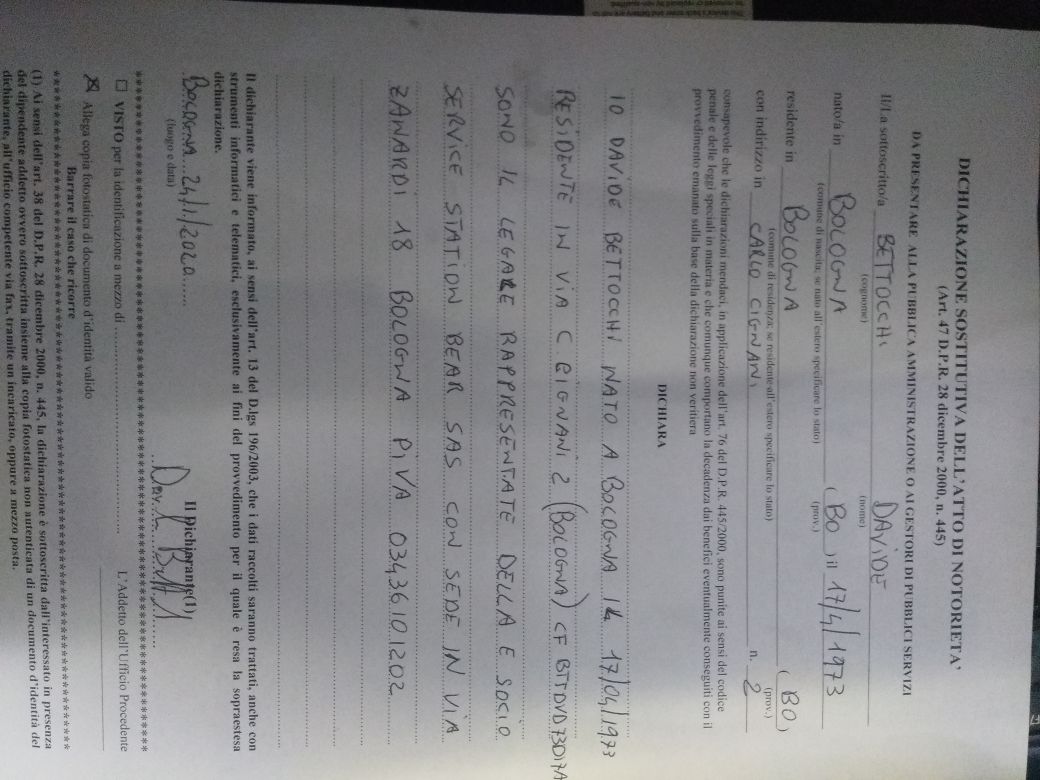 DICHIARAZIONE SOSTITUTIVA DELL'ATTO DI NOTORIETA'
(Art. 47 D.P.R. 28 dicembre 2000, n. 445)
DA PRESENTARE ALLA PUBBLICA AMMINISTRAZIONE O AI GESTORI DI PUBBLICI SERVIZI
Il/La sottoscritto/a BETTOCCHI DAVIDE
(cognome) (nome)
nato/a in BOLOGNA ( BO ) il 17/4/1973
(comune di nascita; se nato all'estero specificare lo stato) (prov.)
residente in BOLOGNA ( BO )
(comune di residenza; se residente all'estero specificare lo stato) (prov.)
con indirizzo in CARLO CIGNANI n. 2
consapevole che le dichiarazioni mendaci, in applicazione dell'art. 76 del D.P.R. 445/2000, sono punite ai sensi del codice
penale e delle leggi speciali in materia e che comunque comportano la decadenza dai benefici eventualmente conseguiti con il
provvedimento emanato sulla base della dichiarazione non veritiera
DICHIARA
IO DAVIDE BETTOCCHI NATO A BOLOGNA IL 17/04/1973
RESIDENTE IN VIA C. CIGNANI 2 (BOLOGNA) CF BTTDVD73D17A
SONO IL LEGALE RAPPRESENTATE DELLA E SOCIO
SERVICE STATION BEAR SAS CON SEDE IN VIA
ZANARDI 18 BOLOGNA PIVA 03436101202
Il dichiarante viene informato, ai sensi dell'art. 13 del D.lgs 196/2003, che i dati raccolti saranno trattati, anche con
strumenti informatici e telematici, esclusivamente ai fini del provvedimento per il quale è resa la sopraestesa
dichiarazione.
BOLOGNA 24/1/2020
(luogo e data)
Il Dichiarante(1)
□ VISTO per la identificazione a mezzo di
L'Addetto dell'Ufficio Procedente
☒ Allega copia fotostatica di documento d'identità valido
Barrare il caso che ricorre
(1) Ai sensi dell'art. 38 del D.P.R. 28 dicembre 2000, n. 445, la dichiarazione è sottoscritta dall'interessato in presenza
del dipendente addetto ovvero sottoscritta insieme alla copia fotostatica non autenticata di un documento d'identità del
dichiarante, all'ufficio competente via fax, tramite un incaricato, oppure a mezzo posta.